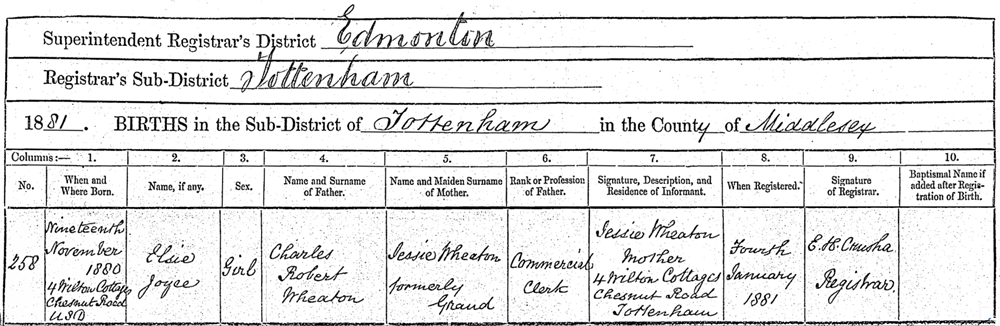 Superintendent Registrar's District Edmonton
Registrar's Sub-District Tottenham
1881. BIRTHS in the Sub-District of Tottenham in the County of Middlesex
Columns:— 1. 2. 3. 4. 5. 6. 7. 8. 9. 10.
No. When and Where Born. Name, if any. Sex. Name and Surname of Father. Name and Maiden Surname of Mother. Rank or Profession of Father. Signature, Description, and Residence of Informant. When Registered. Signature of Registrar. Baptismal Name if added after Registration of Birth.
258
Nineteenth
November
1880
4 Wilton Cottages
Chesnut Road
USD
Elsie
Joyce
Girl
Charles
Robert
Wheaton
Jessie Wheaton
formerly
Grand
Commercial
Clerk
Jessie Wheaton
Mother
4 Wilton Cottages
Chesnut Road
Tottenham
Fourth
January
1881
E.H. Crusha
Registrar.